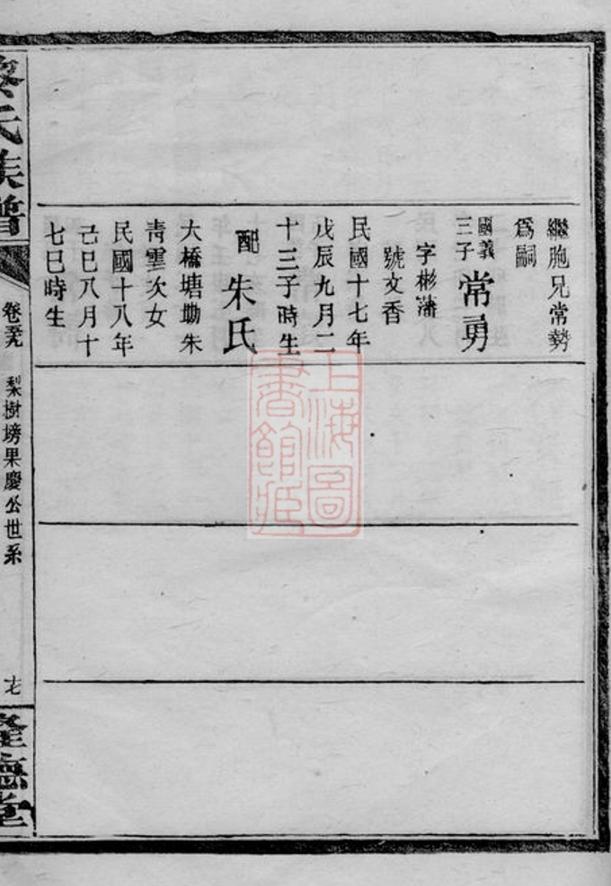 繼胞兄常勢
爲嗣
國義三子常勇
字彬藩
號文香
民國十七年
戊辰九月二
十三子時生
配朱氏
大橋塘坳朱
靑雲次女
民國十八年
己巳八月十
七巳時生
氏族譜
卷
梨樹塝果慶公世系
十七
隆德堂
上海圖書館藏